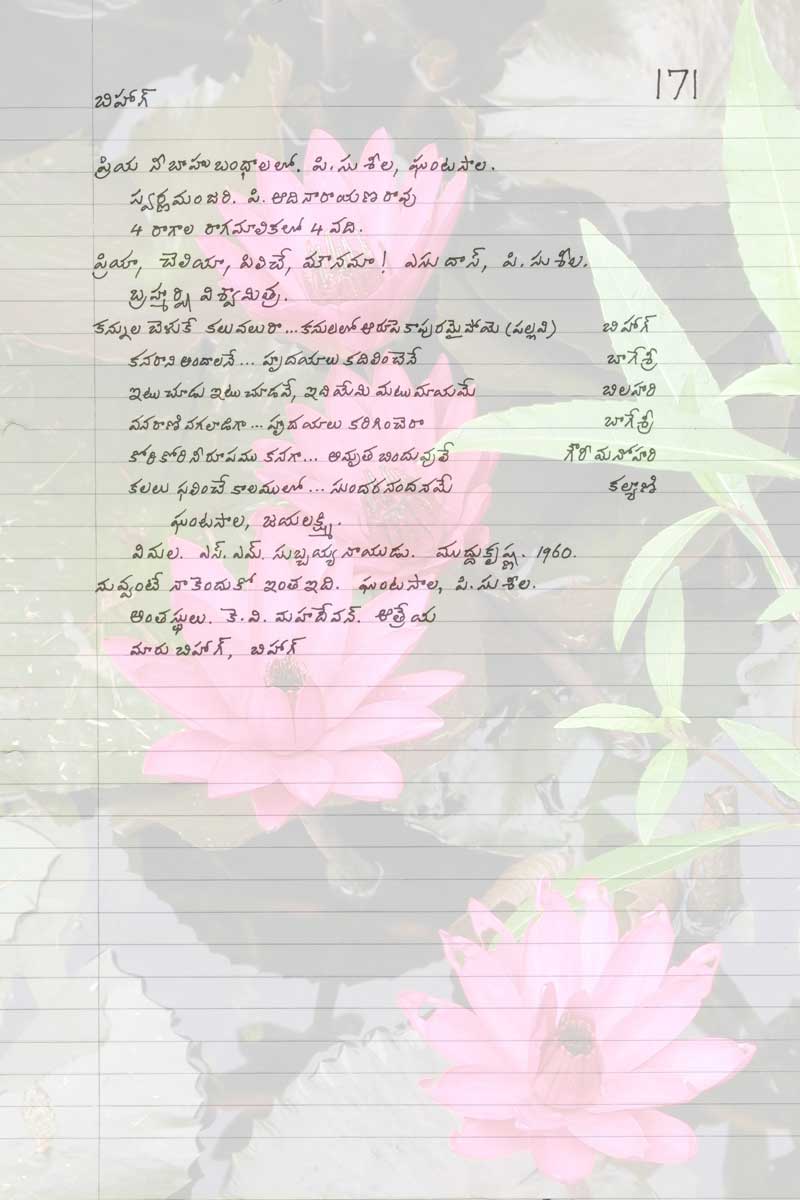 171
బిహాగ్
ప్రియ నీ బాహు బంధాలలో. పి. సుశీల, ఘంటసాల.
స్వర్ణమంజరి. పి. ఆదినారాయణ రావు
4 రాగాల రాగమాలికలో 4 వది.
ప్రియా, చెలియా, పిలిచే, మౌనమా! ఎసుదాస్, పి. సుశీల.
బ్రహ్మర్షి విశ్వామిత్ర.
కన్నుల బెళుకే కలువలురా... కనులలో ఆరూపె కాపురమైపోయె (పల్లవి) బిహాగ్
కనరాని అందాలనే... హృదయాలు కదిలించెనే బాగేశ్రీ
ఇటు చూడు ఇటు చూడవే, ఇది యేమి మటుమాయమే బిలహరి
వనరాణి వగలాడిగా... హృదయాలు కరిగించెరా బాగేశ్రీ
కోరి కోరి నీ రూపము కనగా... అమృత బిందువుతే గౌరీ మనోహరి
కలలు ఫలించే కాలములో... సుందర నందనమే కల్యాణి
ఘంటసాల, జయలక్ష్మి.
విమల. ఎస్. ఎమ్. సుబ్బయ్య నాయుడు. ముద్దుకృష్ణ. 1960.
నువ్వంటే నాకెందుకో ఇంత ఇది. ఘంటసాల, పి. సుశీల.
అంతస్థులు. కె. వి. మహదేవన్. ఆత్రేయ
మారు బిహాగ్, బిహాగ్